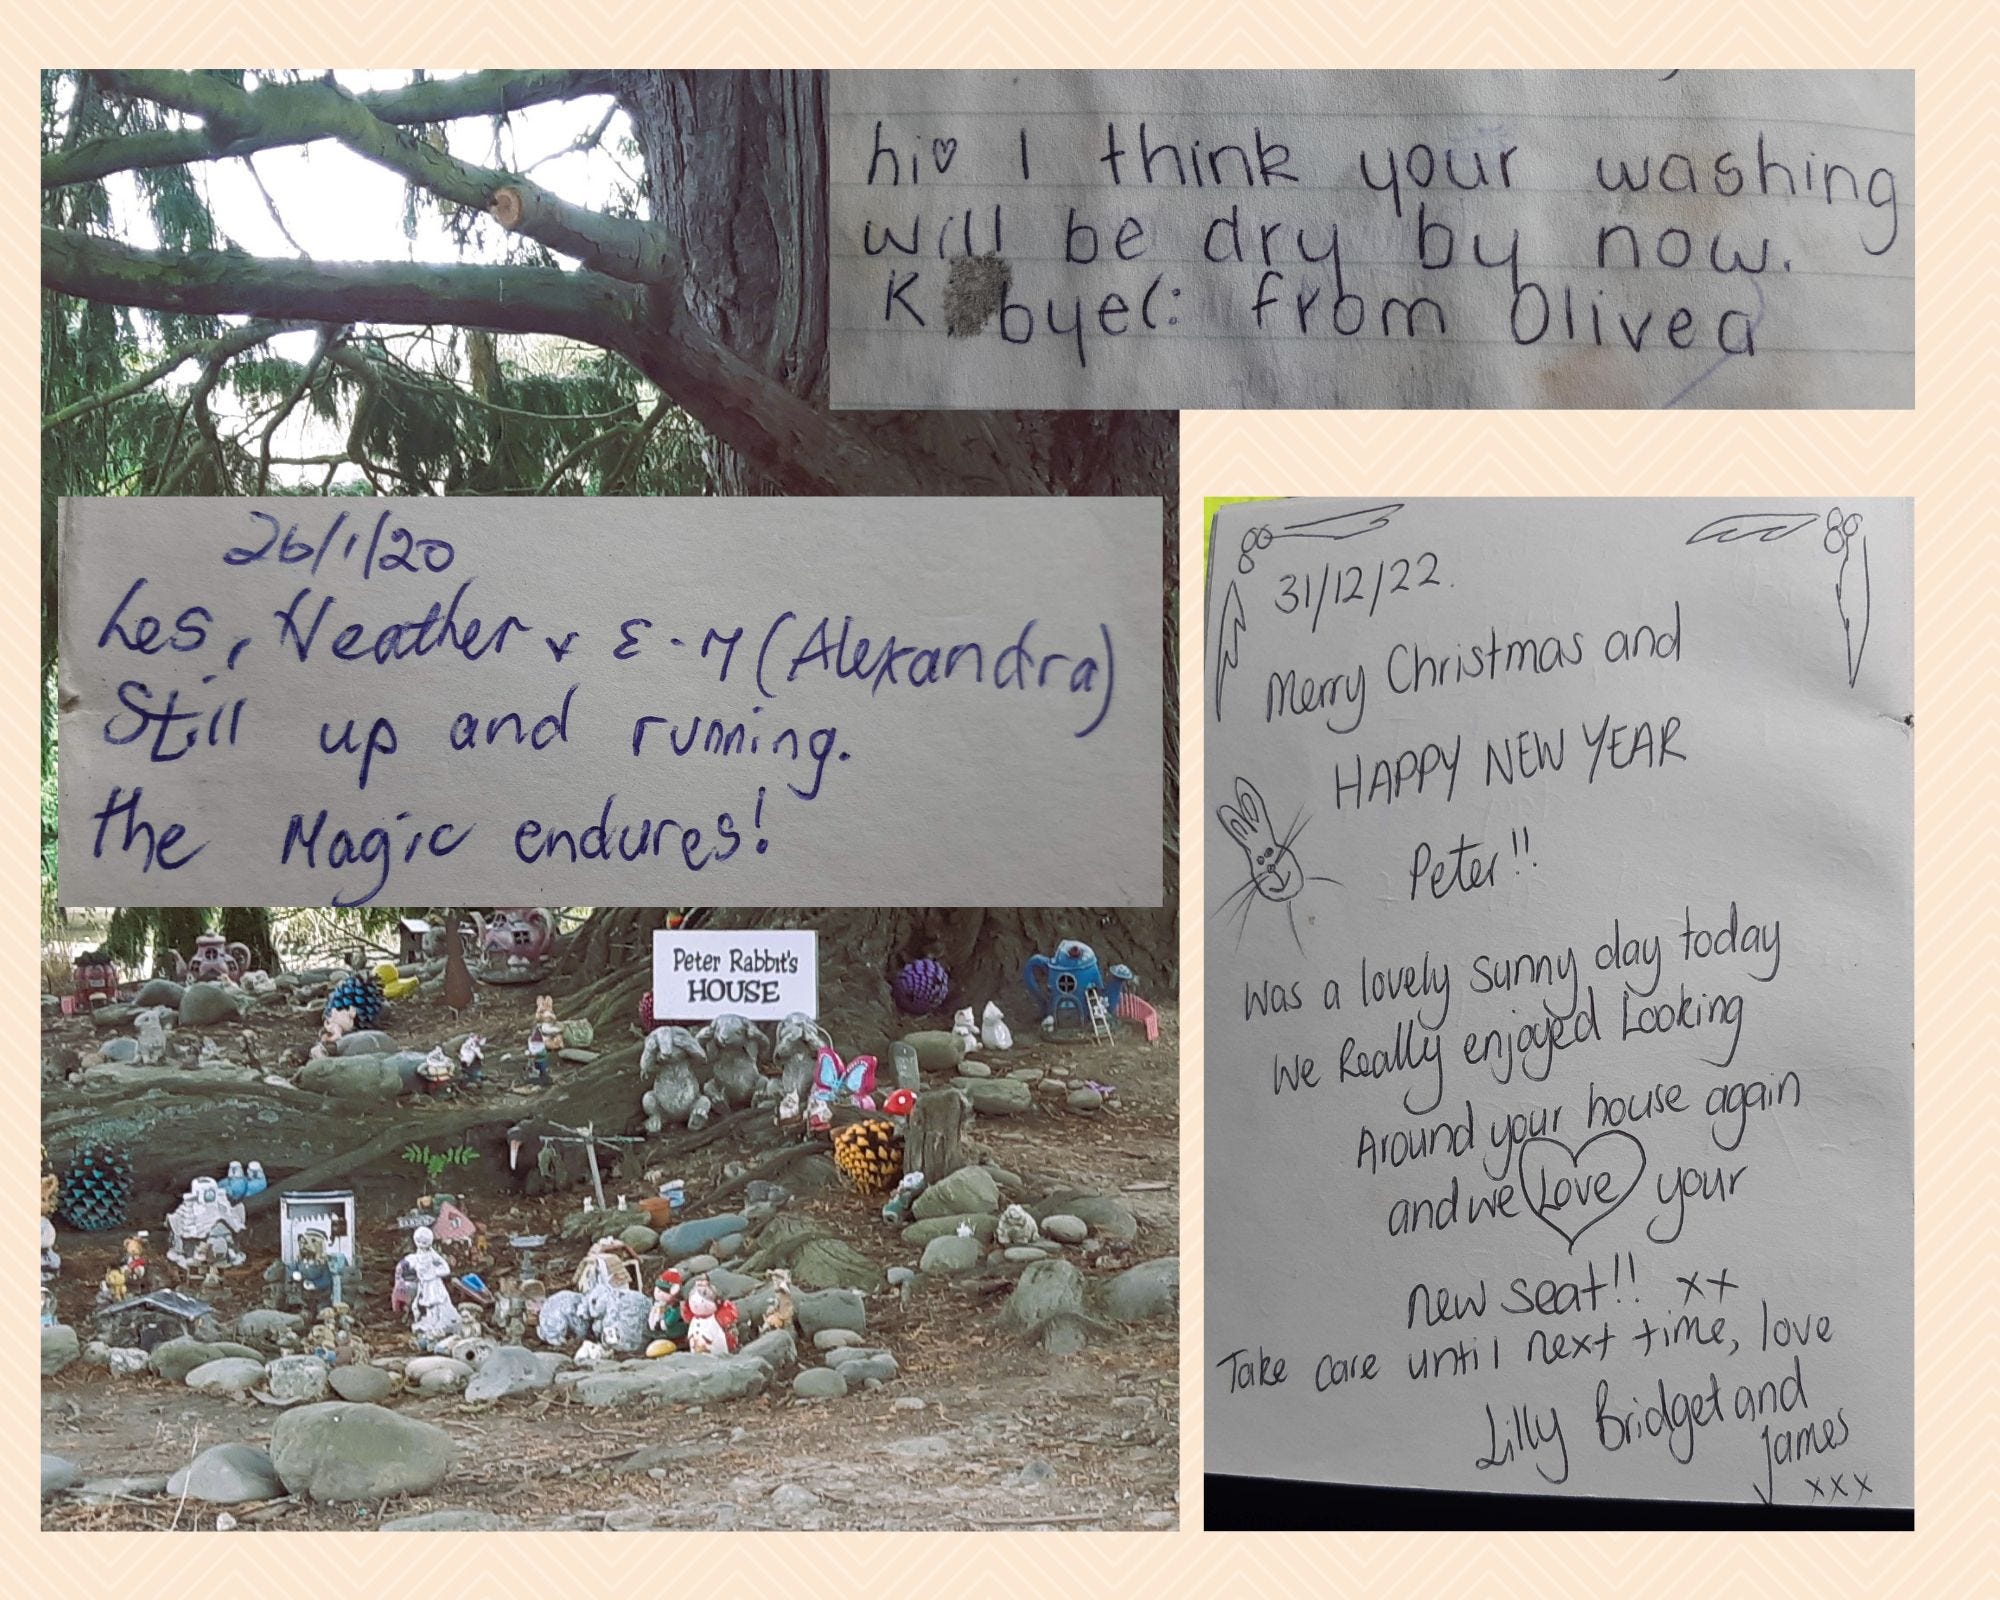 hi♡ I think your washing
will be dry by now.
K bye(: from Olivea
26/1/20
Les, Heather & E-M (Alexandra)
Still up and running.
the Magic endures!
Peter Rabbit's
HOUSE
31/12/22.
Merry Christmas and
HAPPY NEW YEAR
Peter!!
Was a lovely sunny day today
We Really enjoyed Looking
Around your house again
and we Love your
new seat!! xx
Take care until next time, love
Lilly Bridget and
James
xxx